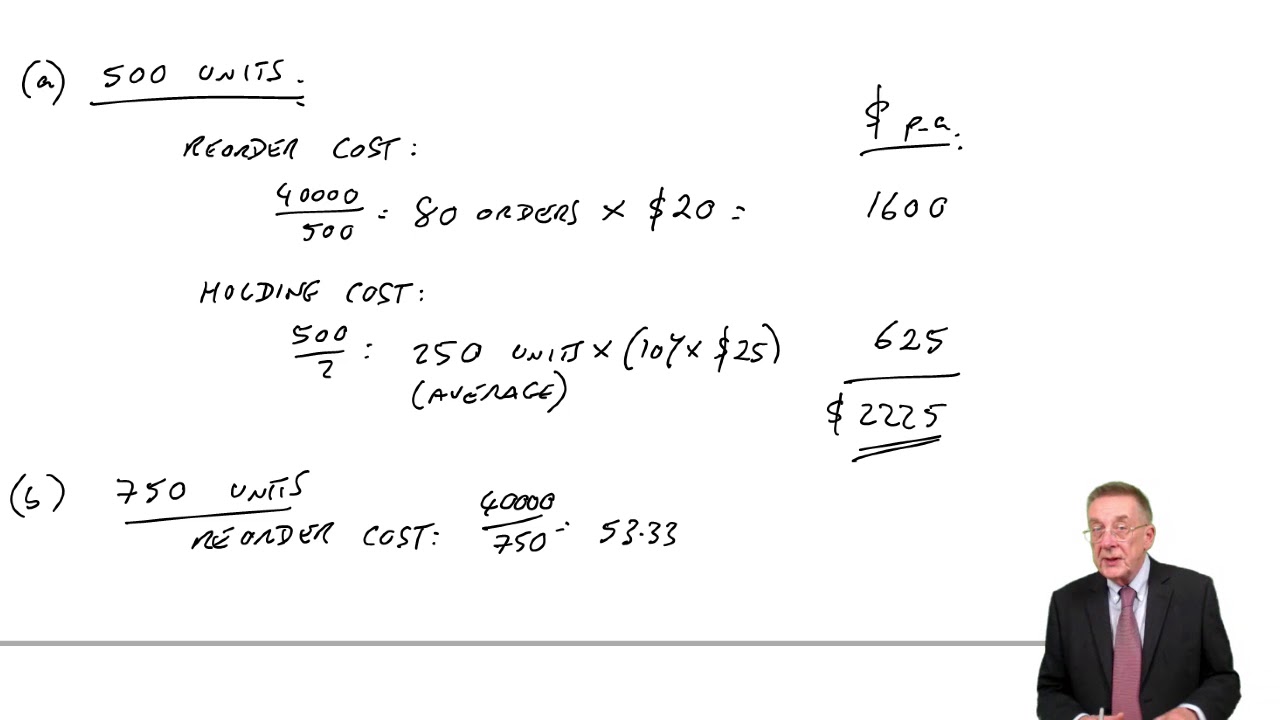 (a) 500 UNITS.
$ p.a.
REORDER COST:
40000
500
= 80 ORDERS × $20 = 1600
HOLDING COST:
500
2
: 250 UNITS × (10% × $25) 625
(AVERAGE)
$ 2225
(b) 750 UNITS
REORDER COST: 40000
750
= 53.33